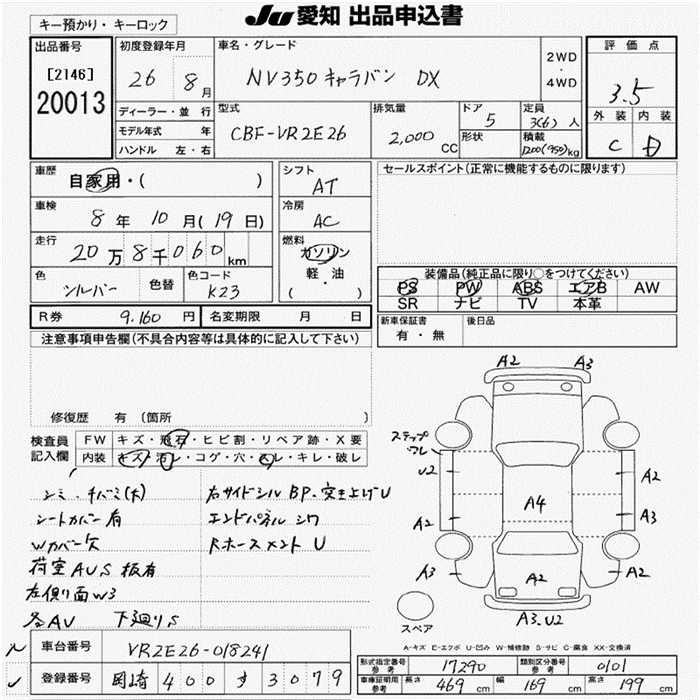 JU 愛知 出品申込書
キー預かり・キーロック
出品番号
[2146]
20013
初度登録年月
26 8月
車名・グレード
NV350キャラバン DX
2WD
・
4WD
評価点
3.5
外装 内装
C D
ディーラー・並行
モデル年式 年
ハンドル 左・右
型式
CBF-VR2E26
排気量
2,000 CC
ドア
5
形状
定員
3(6)人
積載
1200(950)kg
車歴
自家用・( )
車検
8年10月(19日)
走行
20万8千060km
色
シルバー
色替
色コード
K23
シフト
AT
冷房
AC
燃料
ガソリン
軽・油
( )
セールスポイント(正常に機能するものに限ります)
装備品(純正品に限り○をつけてください)
PS PW ABS エアB AW
SR ナビ TV 本革
R券 9,160円
名変期限 月 日
新車保証書
有・無
後日品
注意事項申告欄(不具合内容等は具体的に記入して下さい)
修復歴 有(箇所
検査員
記入欄
FW キズ・飛石・ヒビ割・リペア跡・X要
内装 キズ・汚レ・コゲ・穴・スレ・キレ・破レ
シミ・チバミ(大) 右サイドシルBP・突き上げU
シートカバー有 エンドパネルシワ
Wカバー欠 Rホースメント U
荷室AUS板有
左側面W3
各AV 下廻りS
A2 A3
ステップ
ワレ
U2
A2
A2
A3
A4
A3
A2
A2
A3.U2
スペア
A-キズ E-エクボ U-凹み W-補修跡 S-サビ C-腐食 XX-交換済
車台番号 VR2E26-018241
登録番号 岡崎 400 す 3079
形式指定番号
参考
17290
類別区分番号
参考
0101
車庫証明用
参考
長さ 469 cm 幅 169 cm 高さ 199 cm